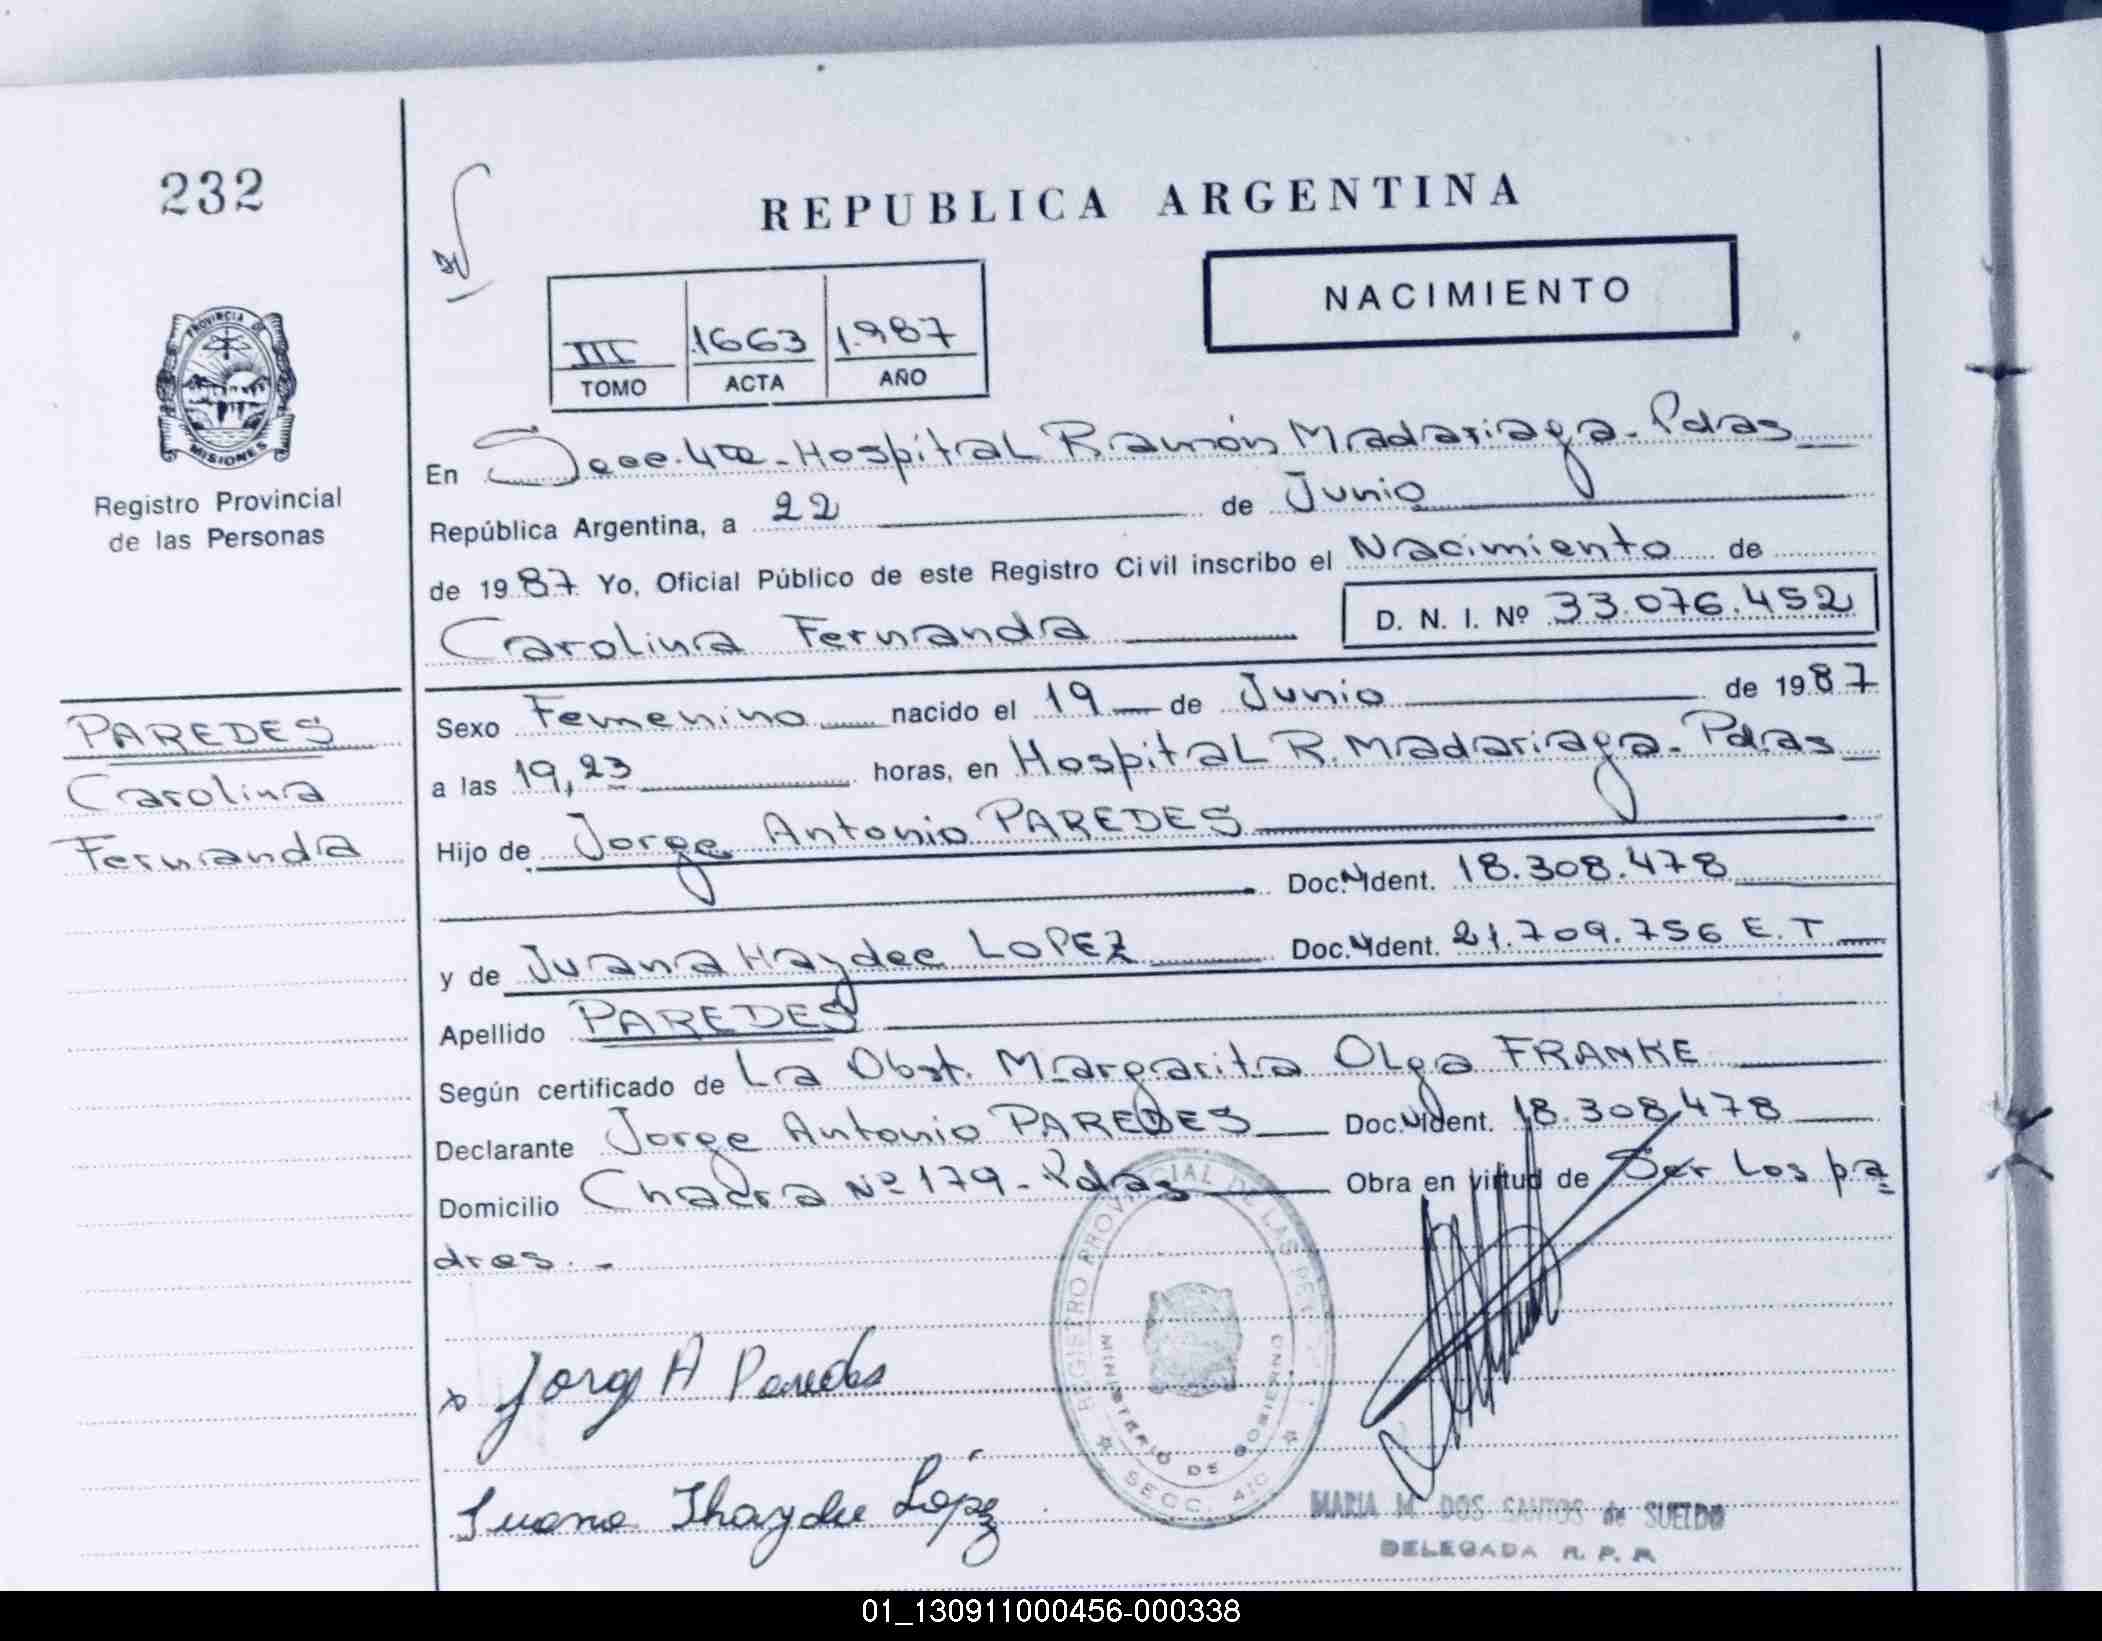 232
REPUBLICA ARGENTINA
NACIMIENTO
III 1663 1.987
TOMO ACTA AÑO
PROVINCIA DE
MISIONES
Registro Provincial
de las Personas
En Secc. 4ta - Hospital Ramón Madariaga - Pdas
República Argentina, a 22 de Junio
de 1987 Yo, Oficial Público de este Registro Civil inscribo el Nacimiento de
Carolina Fernanda D. N. I. Nº 33.076.452
PAREDES
Carolina
Fernanda
Sexo Femenino nacido el 19 de Junio de 1987
a las 19,23 horas, en Hospital R. Madariaga - Pdas
Hijo de Jorge Antonio PAREDES
Doc. N Ident. 18.308.478
y de Juana Haydee LOPEZ Doc. N Ident. 21.709.756 E.T
Apellido PAREDES
Según certificado de La Obst. Margarita Olga FRANKE
Declarante Jorge Antonio PAREDES Doc. N Ident. 18.308.478
Domicilio Chacra Nº 179 - Pdas Obra en virtud de Ser Los pa
dres. -
REGISTRO PROVINCIAL DE LAS
MINISTERIO DE GOBIERNO
SECC.
x Jorge A Paredes
Juana Lopez
MARIA M DOS SANTOS de SUELDO
DELEGADA R. P. P.
01_130911000456-000338